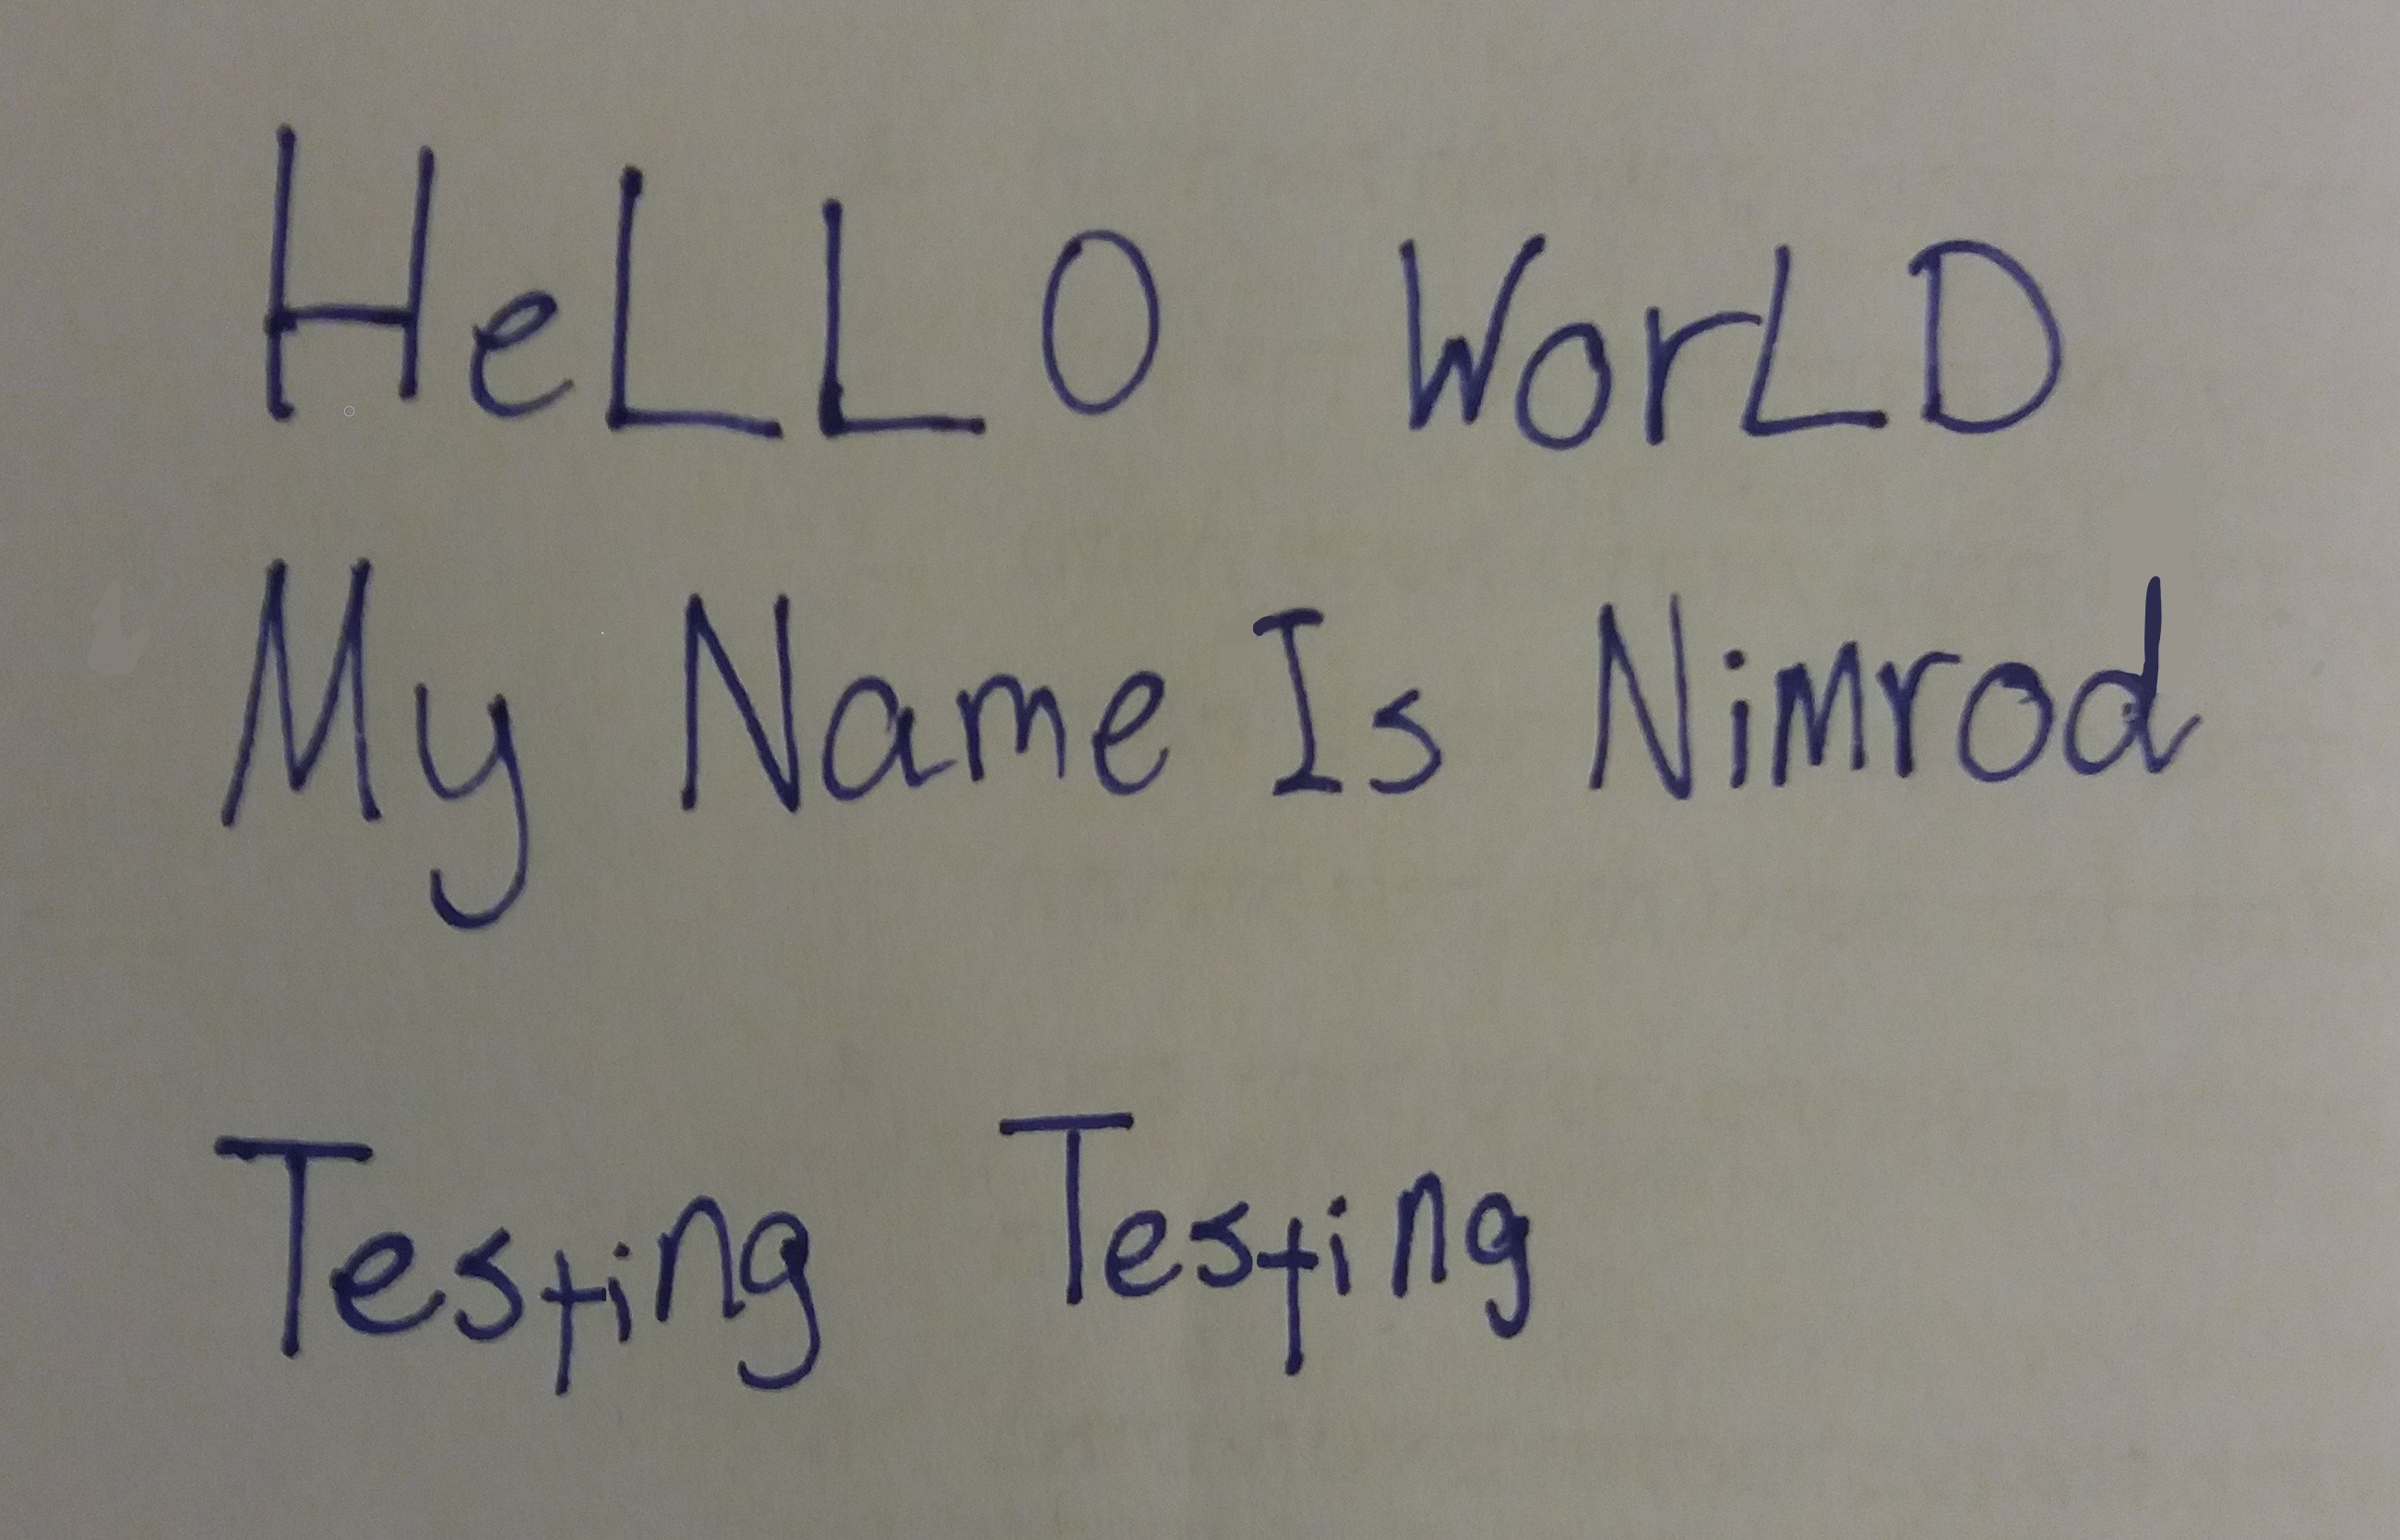 HeLLO WorLD
My Name Is Nimrod
Testing Testing